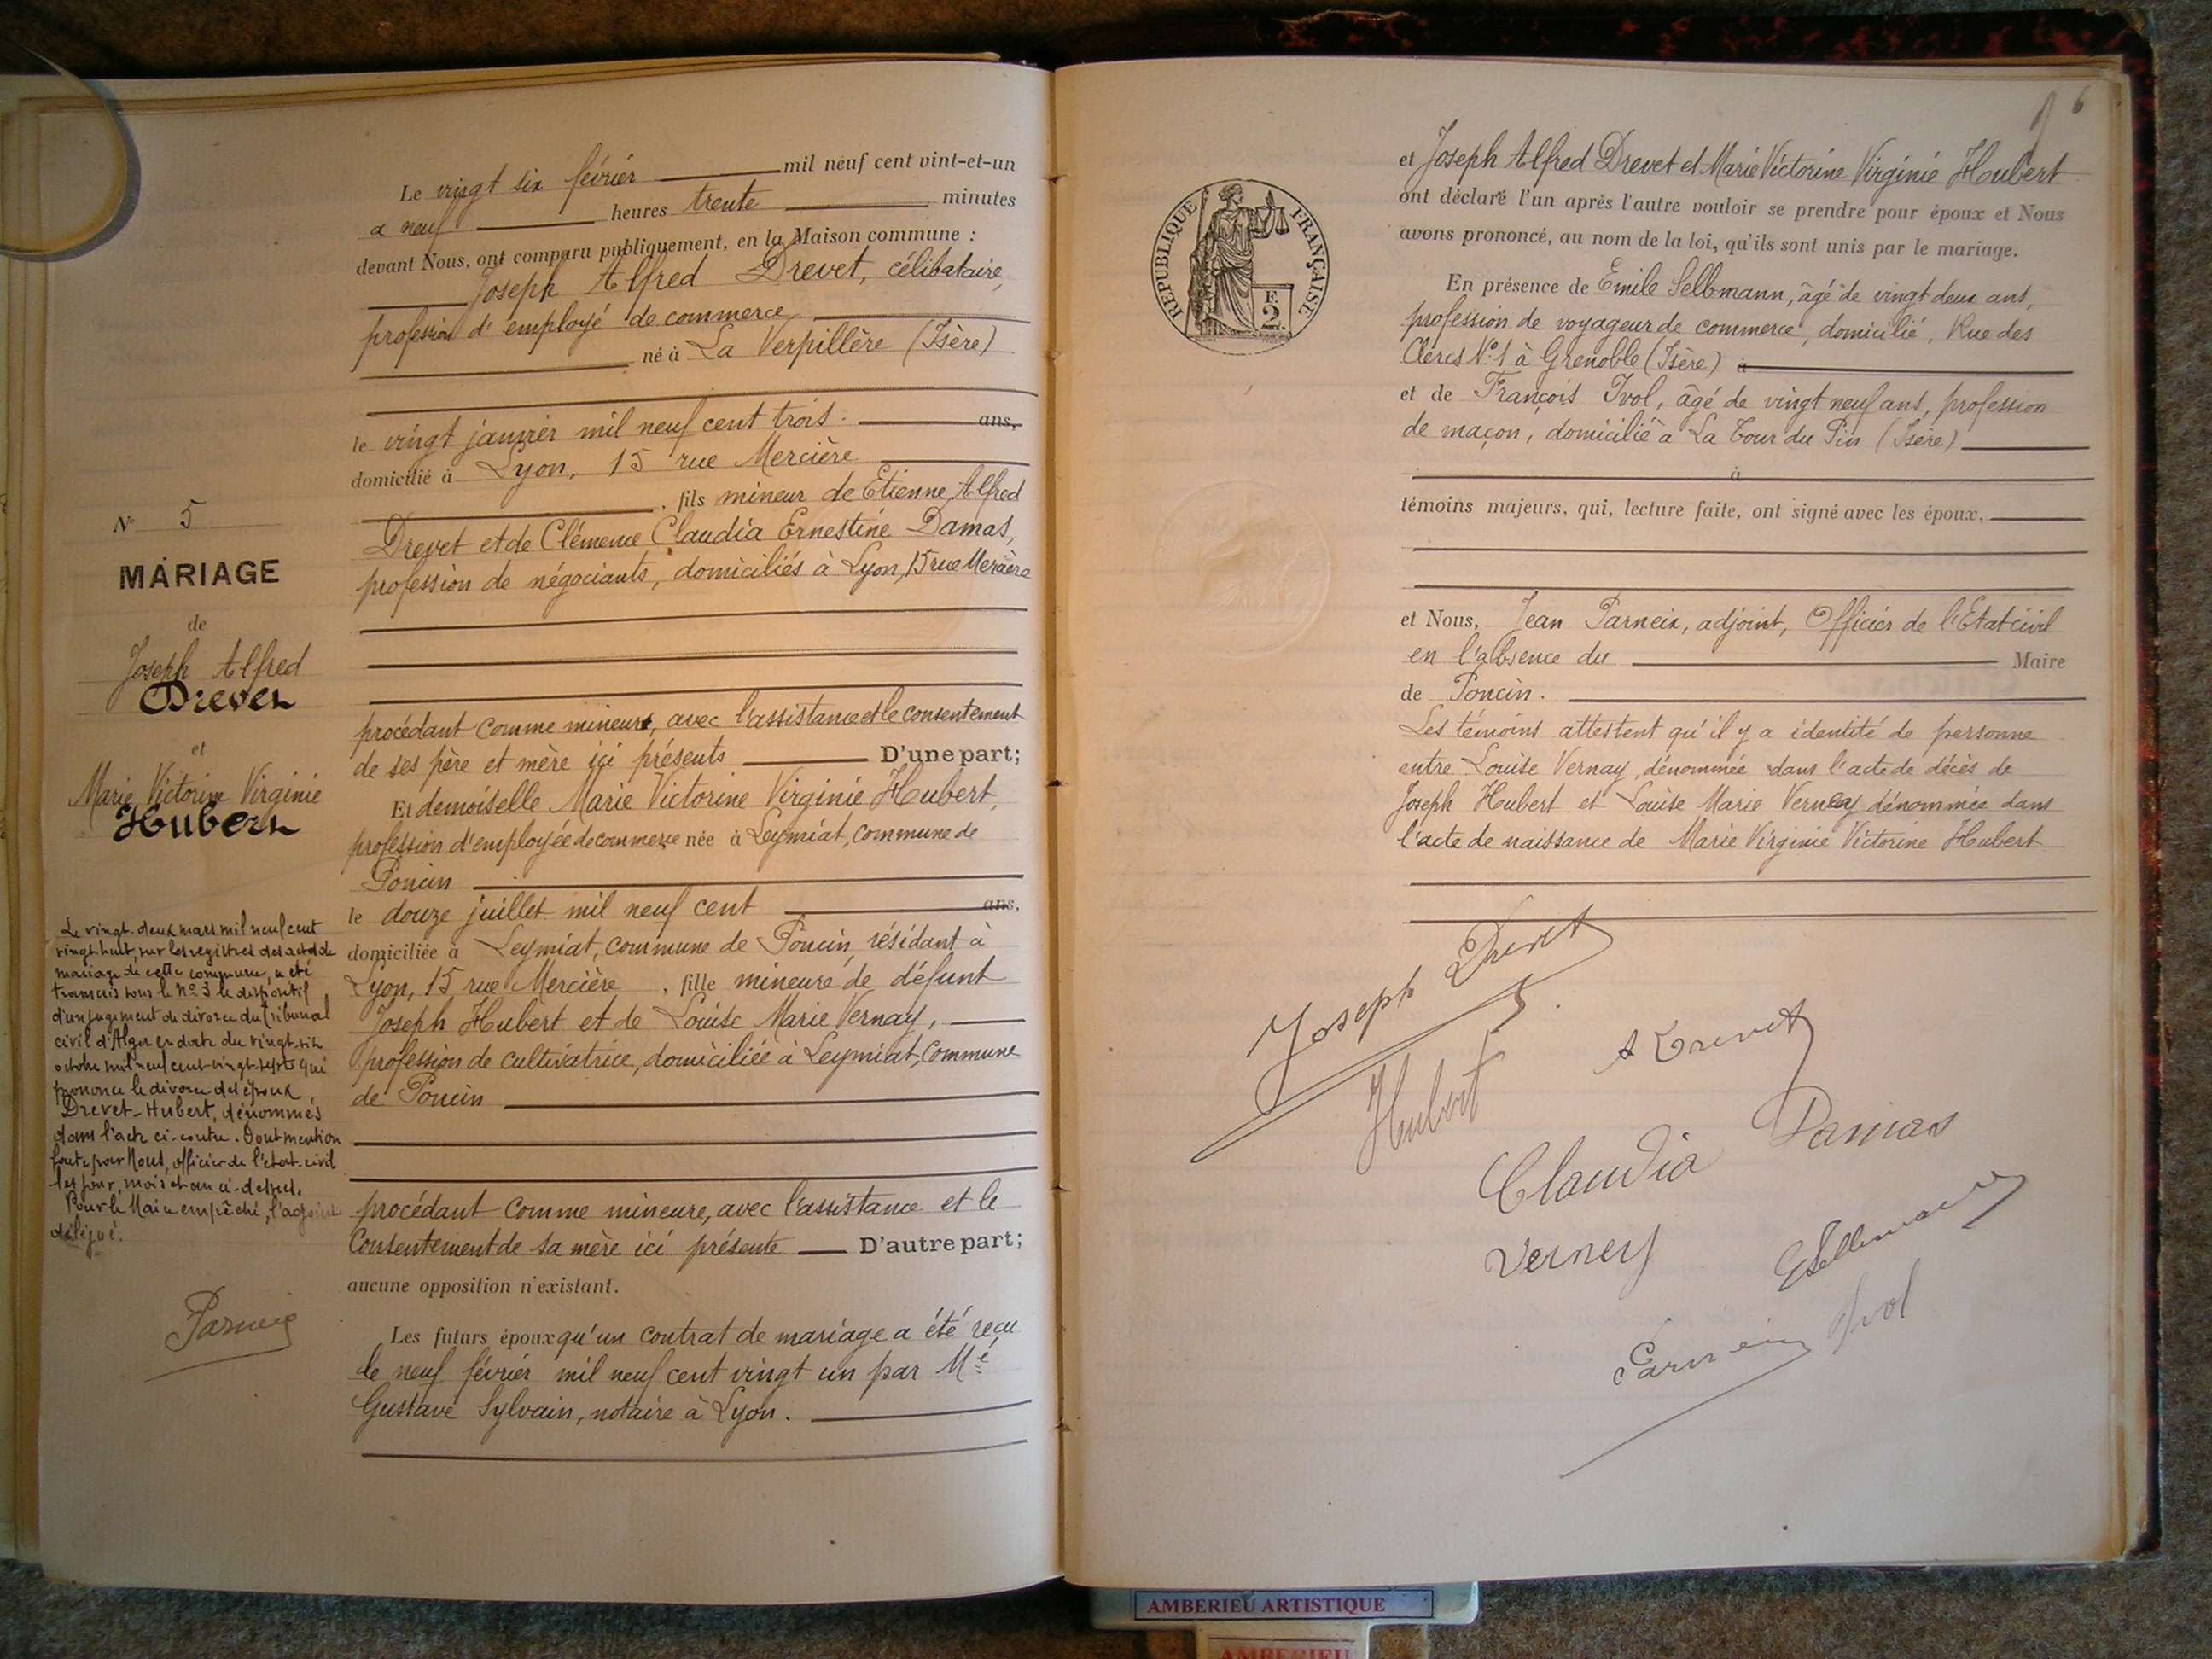 Le vingt six février mil neuf cent vint-et-un
a neuf heures trente minutes
devant Nous, ont comparu publiquement, en la Maison commune :
Joseph Alfred Drevet, célibataire,
profession d'employé de commerce
né à La Verpillère (Isère)
le vingt janvier mil neuf cent trois. ans,
domicilié à Lyon, 15 rue Mercière
, fils mineur de Etienne Alfred
Drevet et de Clémence Claudia Ernestine Damas,
profession de négociants, domiciliés à Lyon, 15 rue Mercière
N° 5
MARIAGE
de
Joseph Alfred
Drevet
et
Marie Victorine Virginie
Hubert
procédant comme mineur, avec l'assistance et le consentement
de ses père et mère ici présents D'une part;
Et demoiselle Marie Victorine Virginie Hubert,
profession d'employée de commerce née à Leymiat, commune de
Poncin
le douze juillet mil neuf cent ans,
domiciliée à Leymiat, commune de Poncin, résidant à
Lyon, 15 rue Mercière , fille mineure de défunt
Joseph Hubert et de Louise Marie Vernay,
profession de cultivatrice, domiciliée à Leymiat, commune
de Poncin
procédant comme mineure, avec l'assistance et le
consentement de sa mère ici présente D'autre part;
aucune opposition n'existant.
Les futurs époux qu'un contrat de mariage a été reçu
le neuf février mil neuf cent vingt un par Me
Gustave Sylvain, notaire à Lyon.
Le vingt-deux mars mil neuf cent
vingt huit, sur les registres des actes de
mariage de cette commune, a été
transcris sous le No 3 le dispositif
d'un jugement de divorce du Tribunal
civil d'Alger en date du vingt-six
octobre mil neuf cent-vingt-sept qui
prononce le divorce des époux
Drevet-Hubert, dénommés
dans l'acte ci-contre. Dont mention
faite par Nous, officier de l'état-civil
les jour, mois et an ci-dessus.
Pour le Maire empêché, l'adjoint
délégué.
Parneix
6
RÉPUBLIQUE FRANÇAISE
F.
2
et Joseph Alfred Drevet et Marie Victorine Virginie Hubert
ont déclaré l'un après l'autre vouloir se prendre pour époux et Nous
avons prononcé, au nom de la loi, qu'ils sont unis par le mariage.
En présence de Emile Sellmann, âgé de vingt deux ans,
profession de voyageur de commerce, domicilié, Rue des
Clercs N°1 à Grenoble (Isère) à
et de François Ivol, âgé de vingt neuf ans, profession
de maçon, domicilié à La Tour du Pin (Isère)
à
témoins majeurs, qui, lecture faite, ont signé avec les époux,
et Nous, Jean Parneix, adjoint, Officier de l'Etat civil
en l'absence du Maire
de Poncin.
Les témoins attestent qu'il y a identité de personne
entre Louise Vernay, dénommée dans l'acte de décès de
Joseph Hubert et Louise Marie Vernay dénommée dans
l'acte de naissance de Marie Virginie Victorine Hubert
Joseph Drevet
Hubert
A Drevet
Claudia Damas
Verney
ESellmann
Parneix
Ivol
AMBERIEU ARTISTIQUE
AMBERIEU